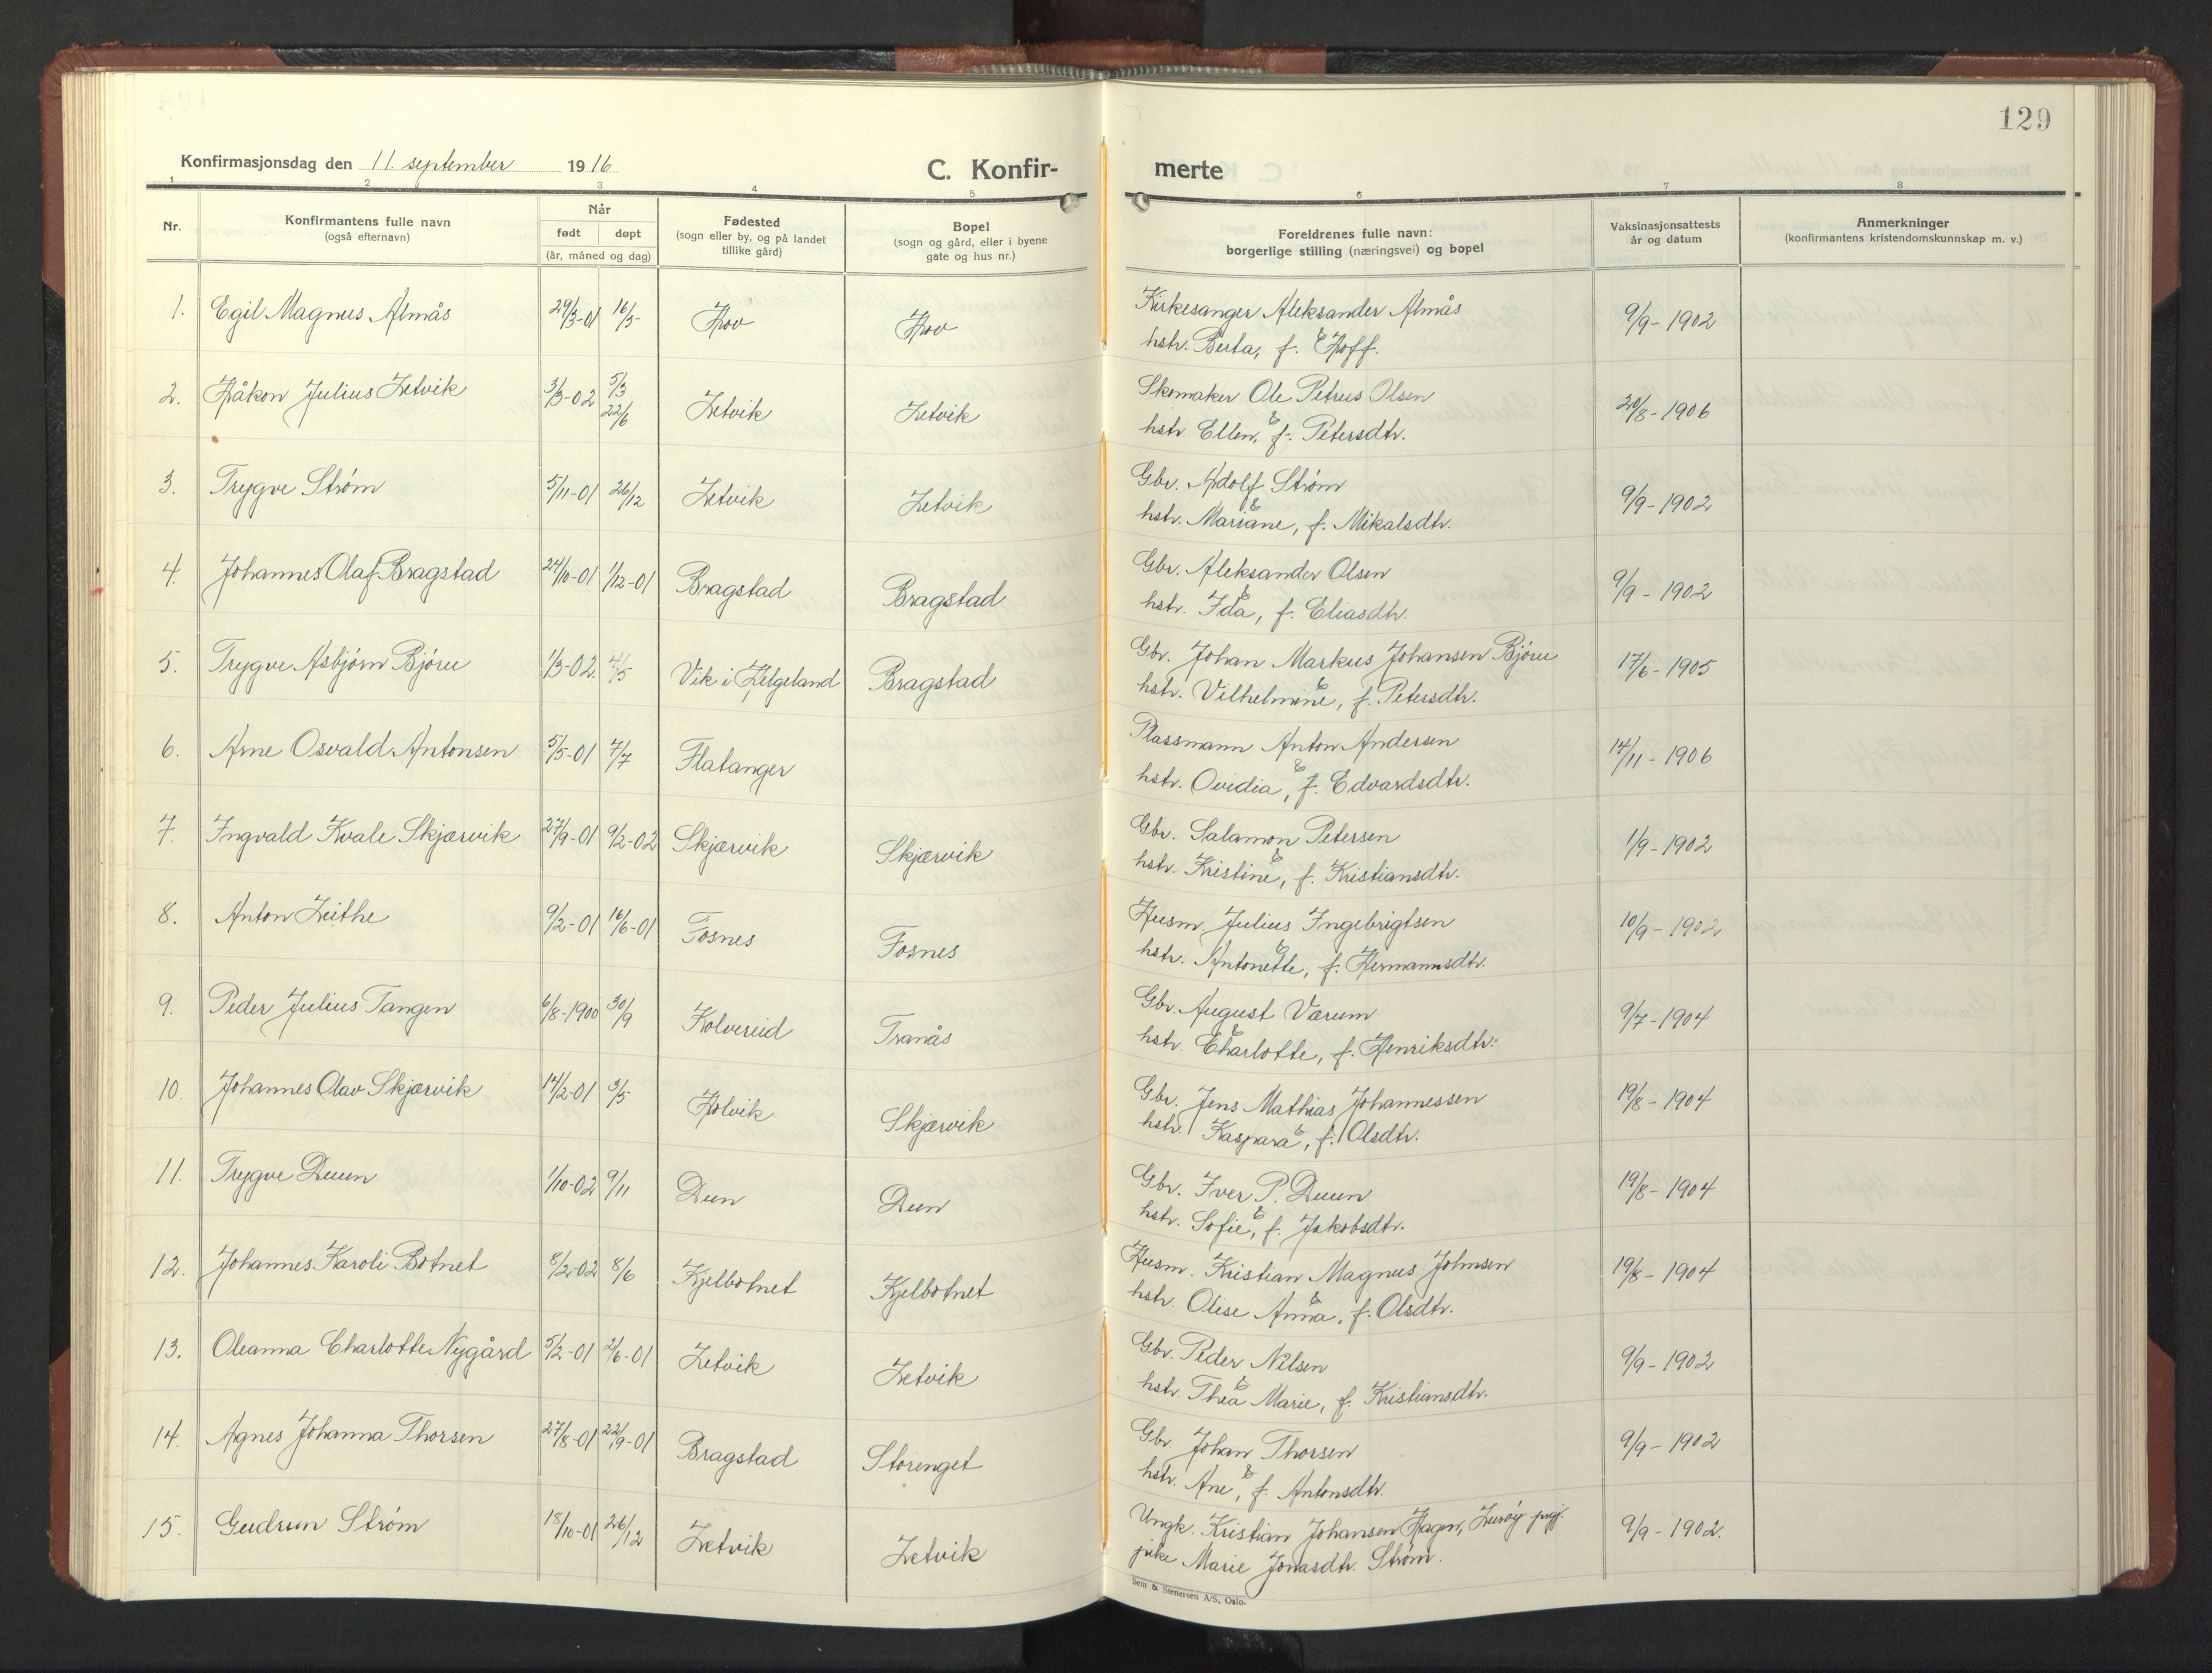 129
Konfirmasjonsdag den 11. september 1916
C. Konfir- merte
1 2 3 4 5 6 7 8
Nr.
Konfirmantens fulle navn
(også efternavn)
Når
født døpt
(år, måned og dag)
Fødested
(sogn eller by, og på landet
tillike gård)
Bopel
(sogn og gård, eller i byene
gate og hus nr.)
Foreldrenes fulle navn:
borgerlige stilling (næringsvei) og bopel
Vaksinasjonsattests
år og datum
Anmerkninger
(konfirmantens kristendomskunnskap m. v.)
1. Egil Magnus Almås 29/3-01 16/5 Hov Hov Kirkesanger Aleksander Almås 9/9-1902
& hstr. Berta, f. Hoff.
2. Håkon Julius Zetvik 3/3-02 5/3 22/6 Zetvik Zetvik Skomaker Ole Petrus Olsen 20/8-1906
& hstr. Ellen, f. Petersdtr.
3. Trygve Strøm 5/11-01 26/12 Zetvik Zetvik Gbr. Adolf Strøm 9/9-1902
& hstr. Mariane, f. Mikalsdtr.
4. Johannes Olaf Bragstad 24/10-01 1/12-01 Bragstad Bragstad Gbr. Aleksander Olsen 9/9-1902
& hstr. Ida, f. Eliasdtr.
5. Trygve Asbjørn Bjøru 1/3-02. 4/5 Vik i Helgeland Bragstad Gbr. Johan Markus Johansen Bjøru 17/6-1905
& hstr. Vilhelmine, f. Petersdtr.
6. Arne Osvald Antonsen 5/5-01 7/7 Flatanger Plassmann Anton Andersen 14/11-1906
& hstr. Ovidia, f. Edvardsdtr.
7. Ingvald Kvale Skjærvik 27/9-01 9/2-02 Skjærvik Skjærvik Gbr. Salamon Petersen 1/9-1902
& hstr. Kristine, f. Kristiansdtr.
8. Anton Leithe 9/2-01 16/6-01 Fosnes Fosnes Husm. Julius Ingebrigtsen 10/9-1902
& hstr. Antonette, f. Hermannsdtr.
9. Peder Julius Tangen 6/8-1900 30/9 Kolvereid Tranås Gbr. August Værum 9/7-1904
& hstr. Charlotte, f. Henriksdtr.
10. Johannes Olav Skjærvik 14/2-01 3/5 Holvik Skjærvik Gbr. Jens Mathias Johannessen 19/8-1904
& hstr. Kaspara, f. Olsdtr.
11. Trygve Duun 1/10-02 9/11 Dun Dun Gbr. Iver P. Duun 19/8-1904
& hstr. Sofie, f. Jakobsdtr.
12. Johannes Karoli Botnet 8/2-02 8/6 Kjelbotnet Kjelbotnet Husm. Kristian Magnus Johnsen 19/8-1904
& hstr. Olise Anna, f. Olsdtr.
13. Oleanna Charlotte Nygård 5/2-01 2/6-01 Zetvik Zetvik Gbr. Peder Nilsen 9/9-1902
& hstr. Thea Marie, f. Kristiansdtr.
14. Agnes Johanna Thorsen 27/8-01 22/9-01 Bragstad Storenget Gbr. Johan Thorsen 9/9-1902
& hstr. Ane, f. Antonsdtr.
15. Gudrun Strøm 18/10-01 26/12 Zetvik Zetvik Ungk. Kristian Johansen Hagen, Lurøy prgj. 9/9-1902.
pike Marie Jonasdtr. Strøm.
Sem & Stenersen A/S, Oslo.